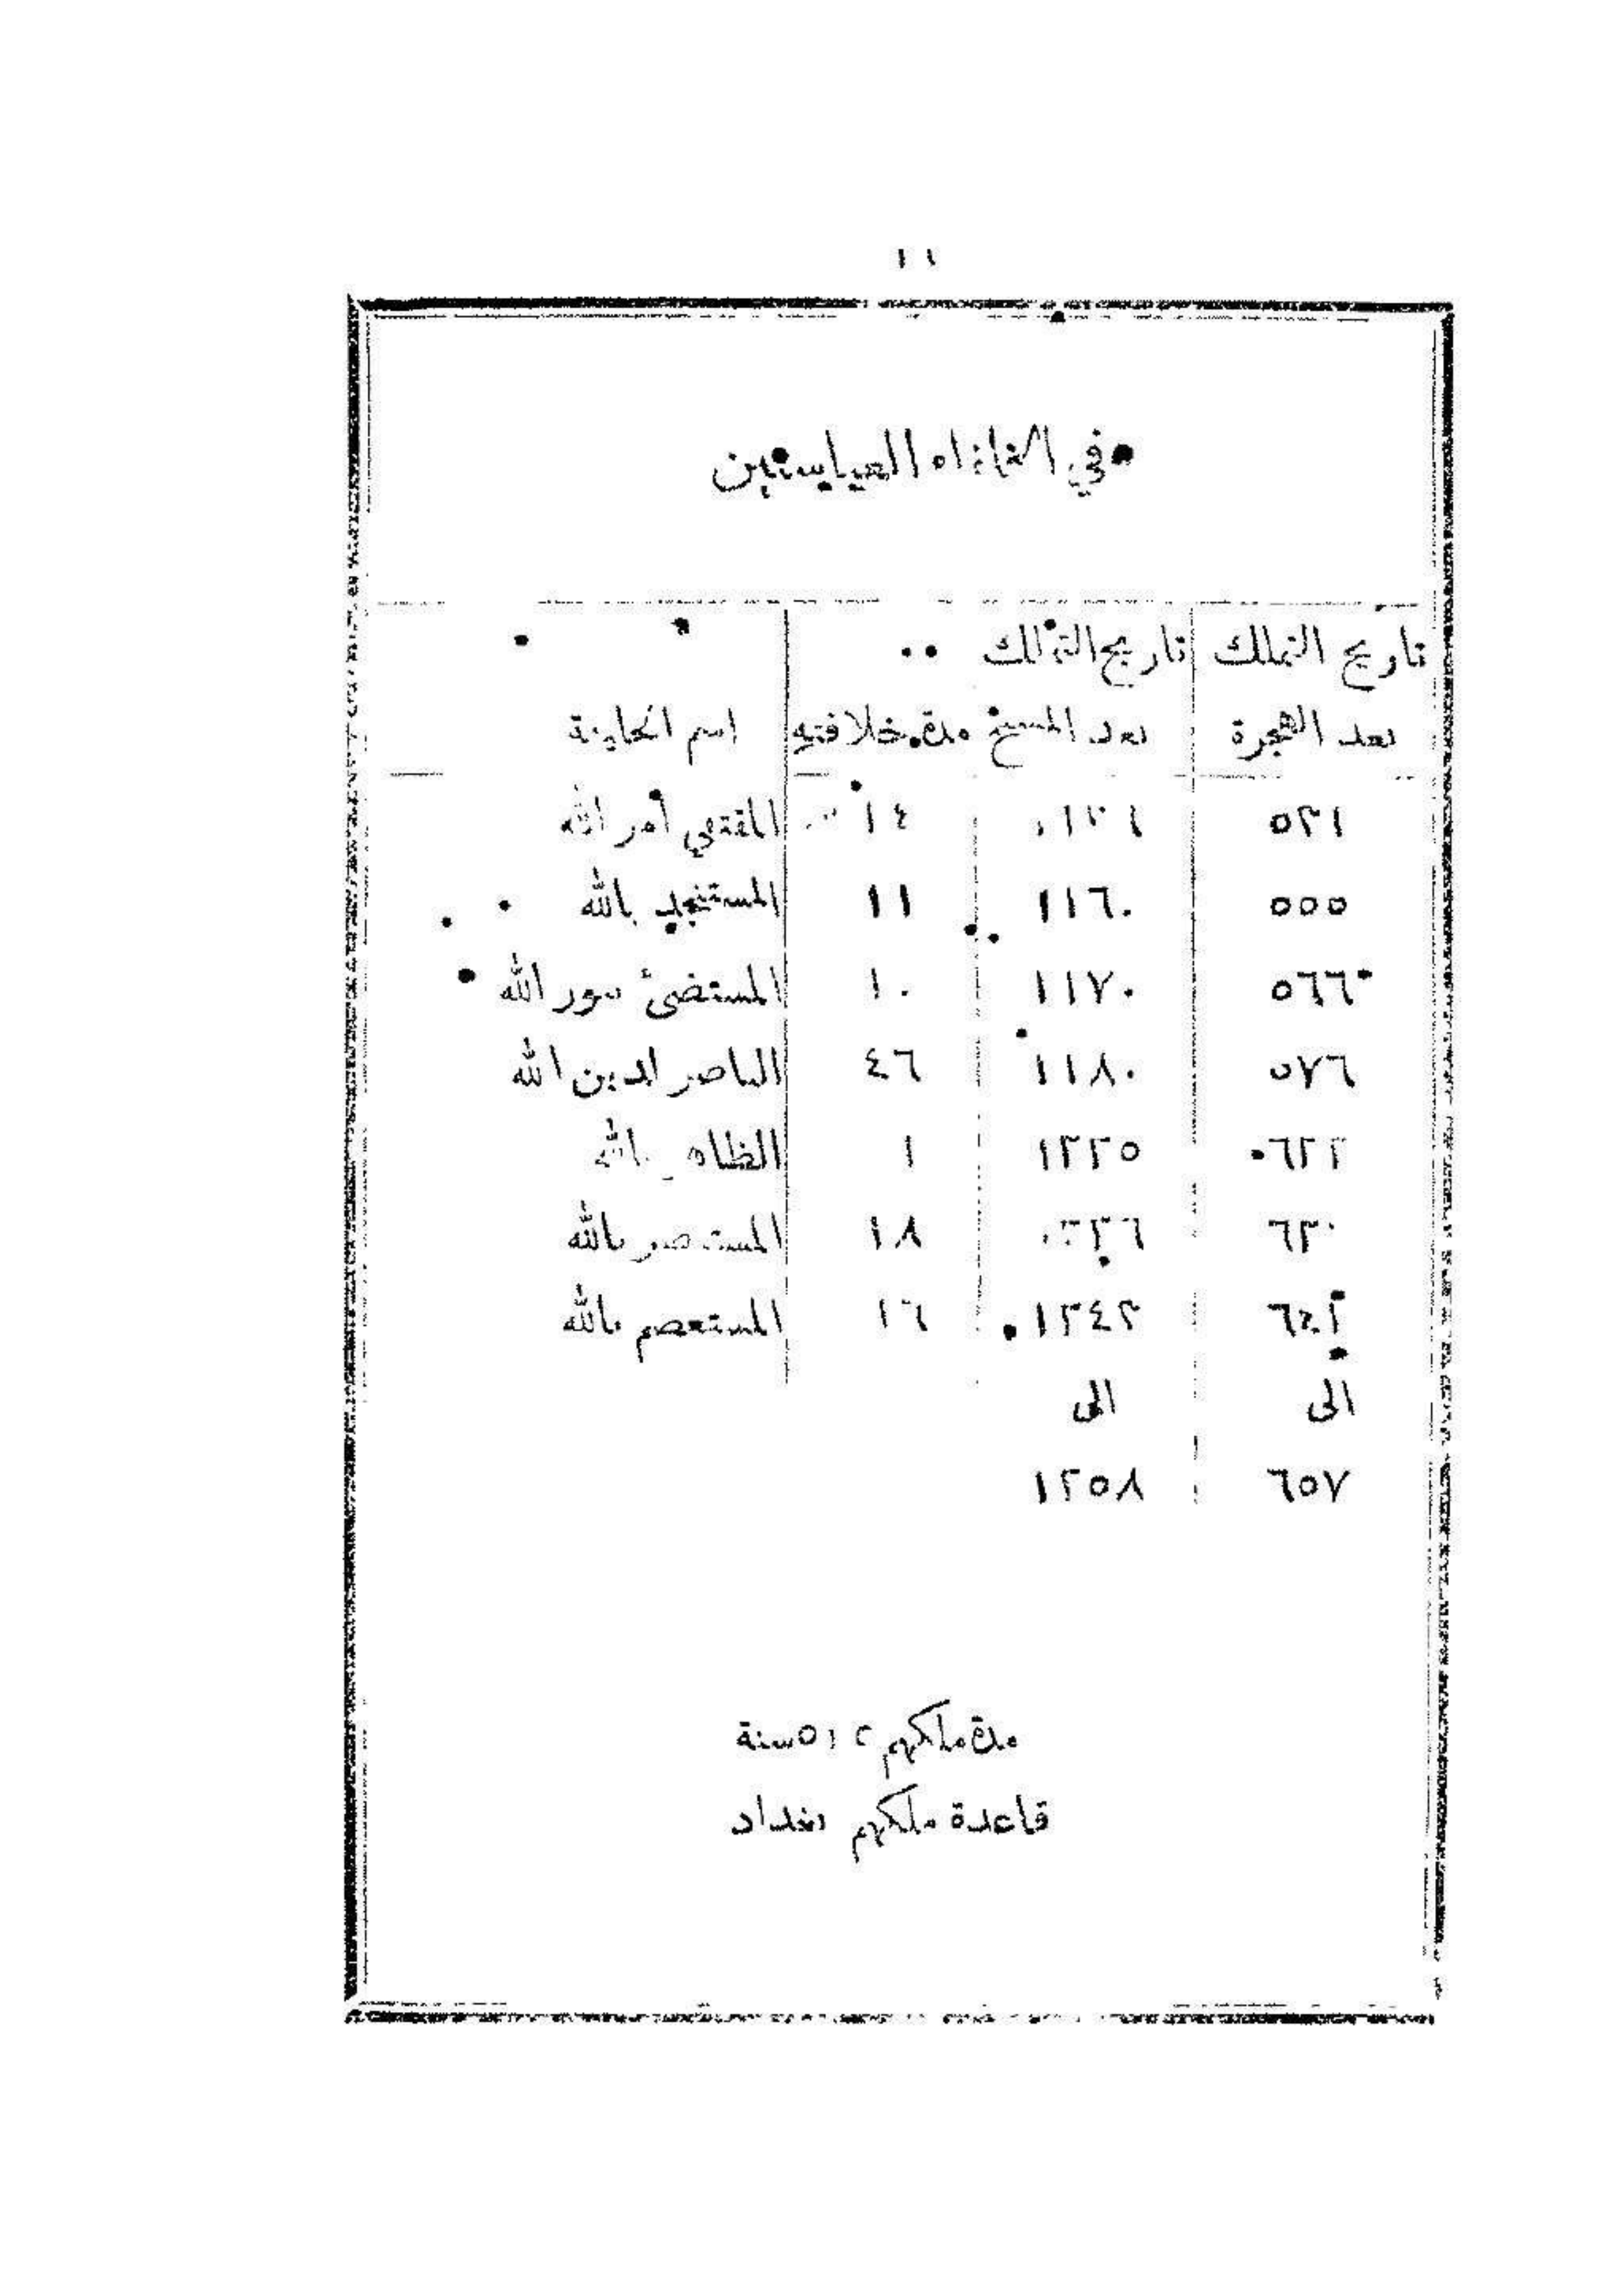 ١١
في الخلفاء العباسيين
تاريخ التملك تاريخ التملك
بعد الهجرة بعد المسيح مدة خلافته اسم الخليفة
٥٢١ ١٤ المقتفي لأمر الله
٥٥٥ ١١٦٠ ١١ المستنجد بالله
٥٦٦ ١١٧٠ ١٠ المستضئ بنور الله
٥٧٦ ١١٨٠ ٤٦ الناصر لدين الله
٦٢٢ ١٢٢٥ ١ الظاهر بالله
١٨ المستنصر بالله
١٢٤٢ ١٦ المستعصم بالله
الى الى
٦٥٧ ١٢٥٨
مدة ملكهم ٥١٢ سنة
قاعدة ملكهم بغداد